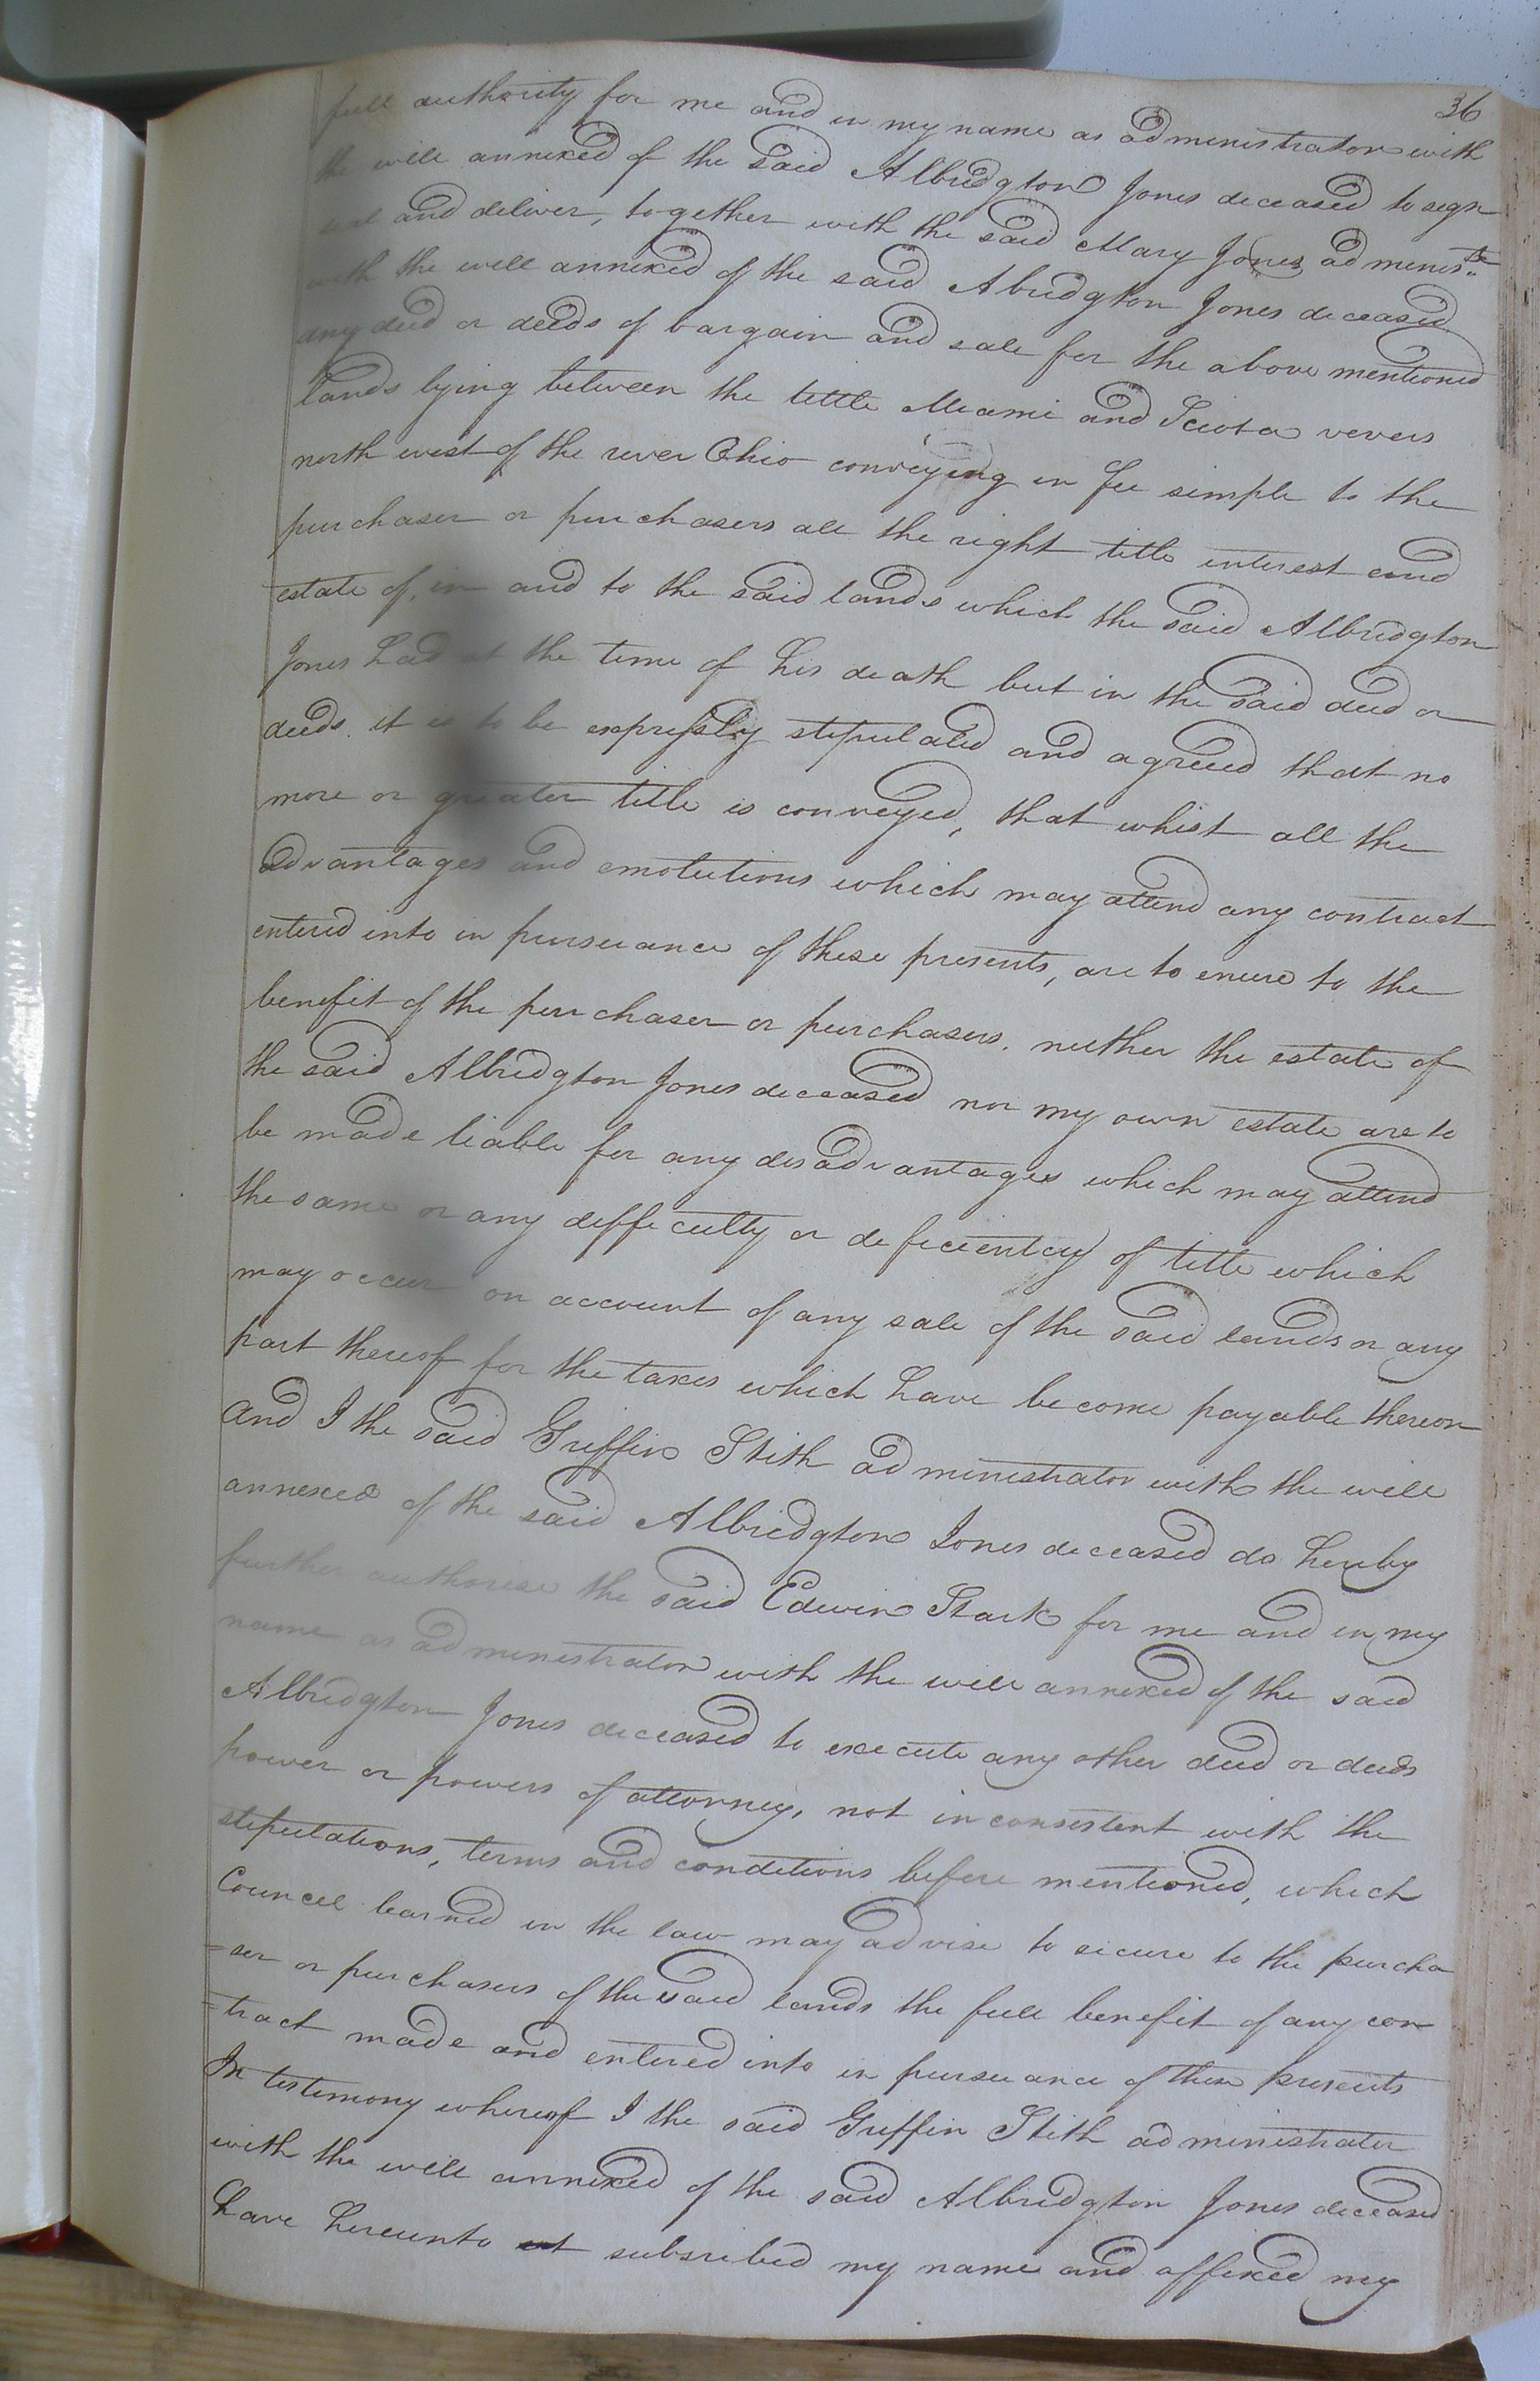 36
full authority for me and in my name as administrator with
the will annexed of the said Albridgton Jones deceased to sign
seal and deliver, together with the said Mary Jones adminis.tx
with the will annexed of the said Abridgton Jones deceased
any deed or deeds of bargain and sale for the above mentioned
lands lying between the little Miami and Sciota rivers
north west of the river Ohio conveying in fee simple to the
purchaser or purchasers all the right title interest and
estate of, in and to the said lands which the said Albridgton
Jones had at the time of his death but in the said deed or
deeds. it is to be expressly stipulated and agreed that no
more or greater title is conveyed, that whist all the
advantages and emolutions which may attend any contract
entered into in pursuance of these presents, are to enure to the
benefit of the purchaser or purchasers. neither the estate of
the said Albridgton Jones deceased nor my own estate are to
be made liable for any disadvantages which may attend
the same or any difficulty or deficientcy of title which
may occur on account of any sale of the said lands or any
part thereof for the taxes which have become payable thereon
and I the said Griffin Stith administrator with the will
annexed of the said Albridgton Jones deceased do hereby
further authorise the said Edwin Stark for me and in my
name as administrator with the will annexed of the said
Albridgton Jones deceased to execute any other deed or deeds
power or powers of attorney, not inconsistent with the
stipulations, terms and conditions before mentioned, which
Council learned in the law may advise to secure to the purcha
=ser or purchasers of the said lands the full benefit of any con
=tract made and entered into in pursuance of these presents
In testimony whereof I the said Griffin Stith administrator
with the will annexed of the said Albridgton Jones deceased
have hereunto subsribed my name and affixed my